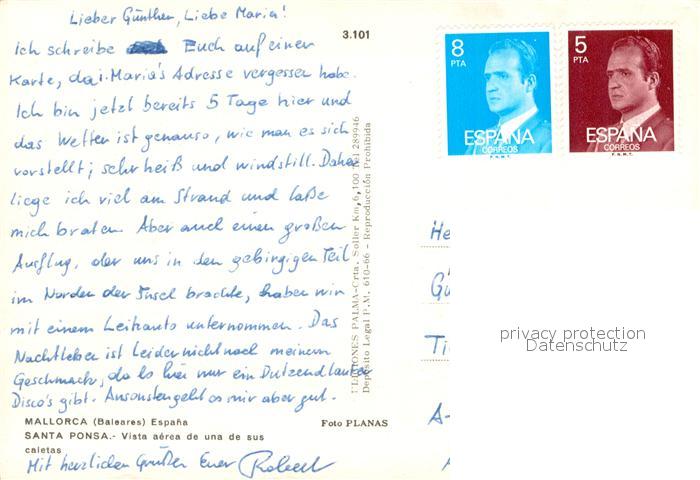 Lieber Günther, Liebe Maria!
Ich schreibe Euch auf einer
Karte, da i. Maria's Adresse vergessen habe.
Ich bin jetzt bereits 5 Tage hier und
das Wetter ist genauso, wie man es sich
vorstellt; sehr heiß und windstill. Daher
liege ich viel am Strand und laße
mich braten. Aber auch einen großen
Ausflug, der uns in den gebirgigen Teil
im Norden der Insel brachte, haben wir
mit einem Leihauto unternommen. Das
Nachtleben ist leider nicht nach meinem
Geschmack, da es hier nur ein Dutzend lauter
Disco's gibt. Ansonsten geht es mir aber gut.
MALLORCA (Baleares) España
Foto PLANAS
SANTA PONSA.- Vista aérea de una de sus
caletas
Mit herzlichen Grüßen Euer Robert
3.101
PALMA-Crta. Soller Km, 6,100 Tel 289946
Depósito Legal P.M. 610-66 - Reproducción Prohibida
8
PTA
ESPAÑA
CORREOS
F.N.M.T.
5
PTA
ESPAÑA
CORREOS
F.N.M.T.
He
Gü
Ti
A-
privacy protection
Datenschutz